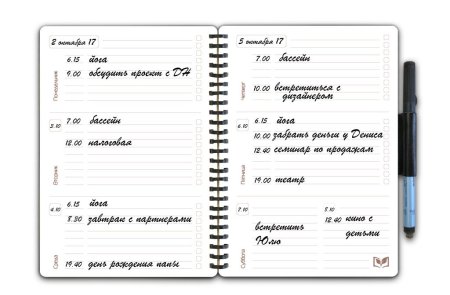 2 октября 17
6.15 йога
9.00 обсудить проект с DH
Понедельник
7.00 бассейн
3.10
12.00 налоговая
Вторник
6.15 йога
4.10
8.30 завтрак с партнерами
19.40 день рождения папы
Среда
5 октября 17
7.00 бассейн
10.00 встретиться с
дизайнером
Четверг
6.10
6.15 йога
10.00 забрать деньги у Дениса
12.40 семинар по продажам
Пятница
19.00 театр
7.10
встретить
Юлю
Суббота
8.10
12.40 кино с
детьми